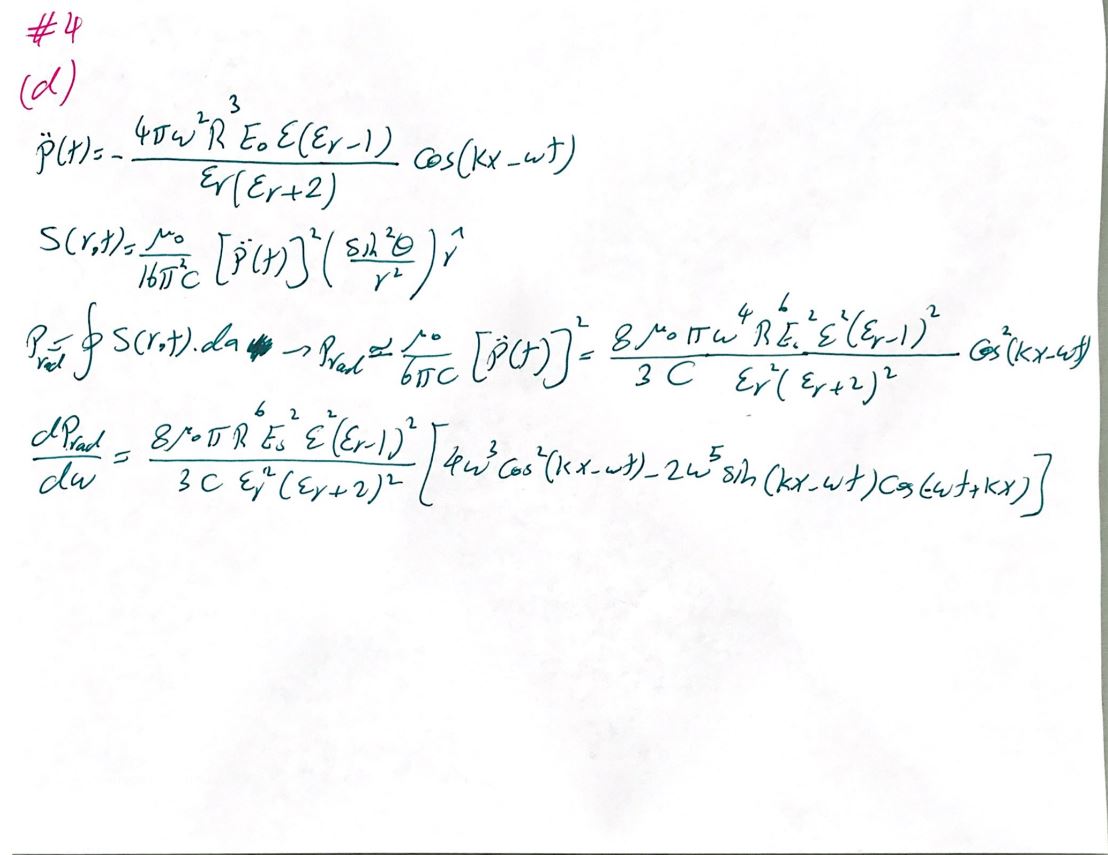 #4
(d)
p̈(t)= - 4πω²R³E₀ε(εr-1) / εr(εr+2) cos(kx-ωt)
S(r,t)= μ₀/16π²c [p̈(t)]² (sin²θ/r²) r̂
Prad = ∮ S(r,t).da → Prad ≃ μ₀/6πc [p̈(t)]² = 8μ₀πω⁴R⁶E₀²ε²(εr-1)² / 3c εr²(εr+2)² cos²(kx-ωt)
dPrad/dω = 8μ₀πR⁶E₀²ε²(εr-1)² / 3c εr²(εr+2)² [4ω³cos²(kx-ωt)-2ω⁵sin(kx-ωt)cos(-ωt+kx)]